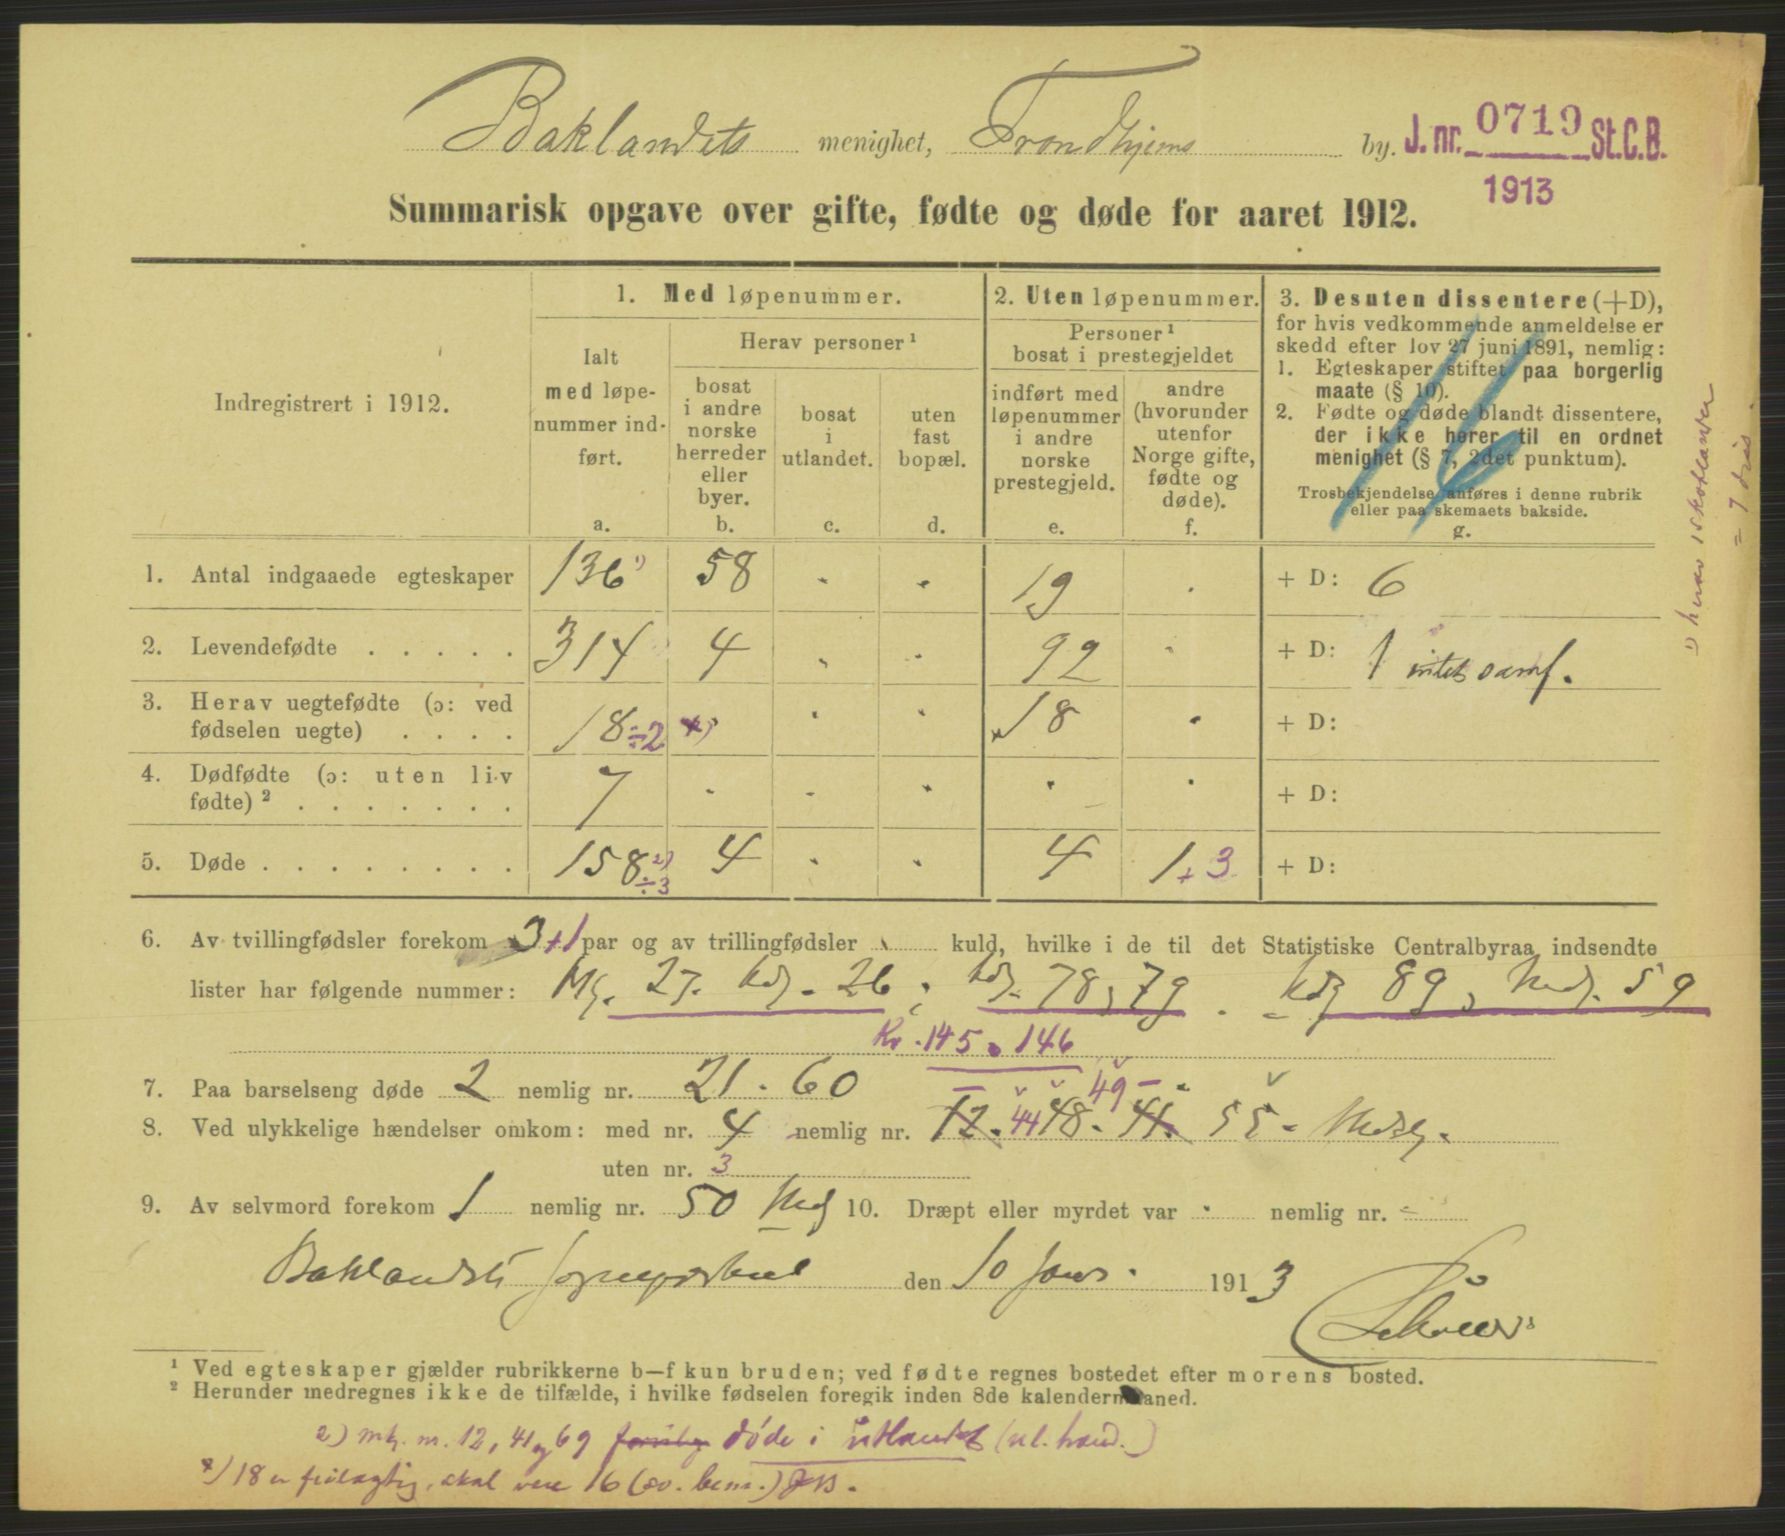 Baklandets menighet, Trondhjems by. J. nr. 0719 St.C.B.
1913
Summarisk opgave over gifte, fødte og døde for aaret 1912.
Indregistrert i 1912.
1. Med løpenummer.
Ialt
med løpe-
nummer ind-
ført.
a.
Herav personer¹
bosat
i andre
norske
herreder
eller
byer.
b.
bosat
i
utlandet.
c.
uten
fast
bopæl.
d.
2. Uten løpenummer.
Personer¹
bosat i prestegjeldet
indført med
løpenummer
i andre
norske
prestegjeld.
e.
andre
(hvorunder
utenfor
Norge gifte,
fødte og
døde).
f.
3. Desuten dissentere (+D),
for hvis vedkommende anmeldelse er
skedd efter lov 27 juni 1891, nemlig:
1. Egteskaper stiftet paa borgerlig
maate (§ 10).
2. Fødte og døde blandt dissentere,
der ikke hører til en ordnet
menighet (§ 7, 2det punktum).
Trosbekjendelse anføres i denne rubrik
eller paa skemaets bakside.
g.
1. Antal indgaaede egteskaper 136 ¹) 58 . . 19 . + D: 6
2. Levendefødte . . . . . 314 4 . . 92 . + D: 1 intet samf.
3. Herav uegtefødte (ɔ: ved
fødselen uegte) . . . . 18 ÷2 *) . . 18 . + D:
4. Dødfødte (ɔ: uten liv
fødte) ² . . . . . . . 7 . . . . . + D:
5. Døde . . . . . . . . 158 ²) ÷3 4 . . 4 1 + 3 + D:
6. Av tvillingfødsler forekom 3+1 par og av trillingfødsler . kuld, hvilke i de til det Statistiske Centralbyraa indsendte
lister har følgende nummer: 27. 26; 78, 79. 89, 59
145. 146
7. Paa barselseng døde 2 nemlig nr. 21. 60
49
8. Ved ulykkelige hændelser omkom: med nr. 4 nemlig nr. 12. 44 48. 41. 55
uten nr. 3
9. Av selvmord forekom 1 nemlig nr. 50 10. Dræpt eller myrdet var . nemlig nr. -
Baklandets den 10 Janr. 1913
¹ Ved egteskaper gjælder rubrikkerne b—f kun bruden; ved fødte regnes bostedet efter morens bosted.
² Herunder medregnes ikke de tilfælde, i hvilke fødselen foregik inden 8de kalendermaaned.
2) mk. nr. 12, 41 og 69 døde i utlandet
*) 18 er feilagtig, skal være 16
1) herav 1 skotlænder
= 7 diss.